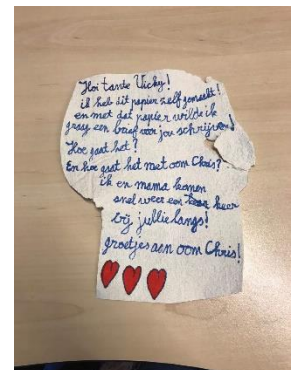 Hoi tante Vicky!
ik heb dit papier zelf gemaakt!
en met dat papier wilde ik
graag een brief voor jou schrijven!
Hoe gaat het?
En hoe gaat het met oom Chris?
ik en mama komen
snel weer een keer
bij jullie langs!
groetjes aan oom Chris!